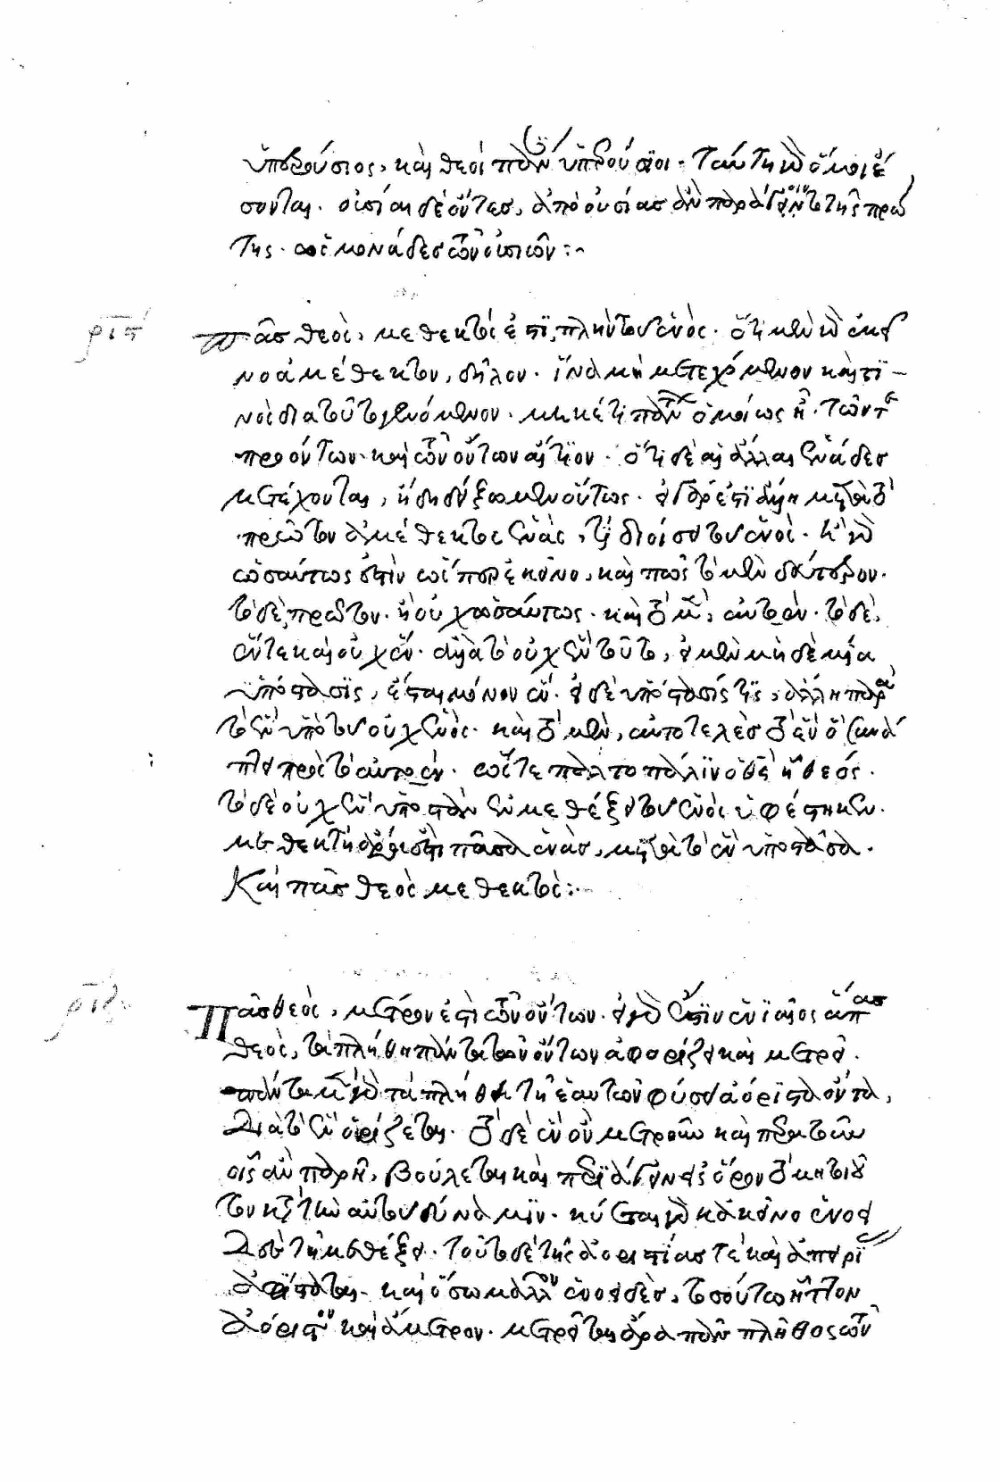 ὑπερούσιος, καὶ θεοὶ πάντες ὑπερούσιοι. ταύτη γὰρ ὅμοιοι ἔ
σονται. οὐσίαι δὲ ὄντες, ἀπὸ οὐσίας ἂν παράγοιντο τῆς πρώ
της. ὡς μονάδες τῶν οὐσιῶν:~
ριϛ πᾶς θεὸς, μεθεκτός ἐστι, πλὴν τοῦ ἑνός. ὅτι μὲν γὰρ ἐκεῖ
νο ἀμέθεκτον, δῆλον. ἵνα μὴ μετεχόμενον καὶ τι
νὸς διατοῦτο γενόμενον. μηκέτι πάντων ὁμοίως ἦ. τῶν τε
προόντων καὶ τῶν ὄντων αἴτιον. ὅτι δὲ αἱ ἄλλαι ἑνάδες
μετέχονται, ἤδη δείξομεν οὕτως. εἰ γὰρ ἐστὶν ἄλλη μετὰ τὸ
πρῶτον ἀμέθεκτος ἑνὰς, τί διοίσει τοῦ ἑνός. ἢ γὰρ
ὡσαύτως ἐστὶν ὥσπερ ἐκεῖνο, καὶ πῶς τὸ μὲν δεύτερον.
τὸ δὲ πρῶτον. ἢ οὐχ ὡσαύτως. καὶ τὸ μὲν, αὐτοέν. τὸ δὲ,
ἕν τε καὶ οὐχ ἕν. ἀλλὰ τὸ οὐχ ἓν τοῦτο, εἰ μὲν μηδεμία
ὑπόστασις, ἔσται μόνον ἕν. εἰ δὲ ὑπόστασίς τις, ἄλλη παρὰ
τὸ ἓν ὑπὸ τοῦ οὐχ ἑνός. καὶ τὸ μὲν, αὐτοτελὲς τὸ ἓν ὃ συνά
πτει πρὸς τὸ αὐτοέν. ὥστε πάλιν τοῦτο πάλιν ὁ θεὸς ἦ θεός.
τὸ δὲ οὐχ ἓν ὑποστὰν ἐν μεθέξει τοῦ ἑνὸς ὑφέστηκεν.
μεθεκτὴ ἄρα ἐστὶ πᾶσα ἑνὰς, μετὰ τὸ ἓν ὑποστᾶσα.
Καὶ πᾶς θεὸς μεθεκτός:~
ριζ Πᾶς θεὸς, μέτρον ἐστὶ τῶν ὄντων. εἰ γὰρ ἐστὶν ἑνιαῖος ἅπας
θεὸς, τὰ πλήθη πάντα τῶν ὄντων ἀφορίζει καὶ μετρεῖ.
πάντα μὲν γὰρ τὰ πλήθη τῇ ἑαυτῶν φύσει ἀόριστα ὄντα,
Διὰ τὸ ἓν ὁρίζεται. τὸ δὲ ἑνιαῖον μετροῦν καὶ περατοῦν
οἷς ἂν παρῆ, βούλεται καὶ περιάγειν εἰς ὅρον τὸ μὴ τοιοῦ
τον κατὰ τὴν αὐτοῦ δύναμιν. γίνεται γὰρ κἀκεῖνο ἑνοει
Δὲς τῇ μεθέξει. τοῦτο δὲ τῆς ἀοριστίας τὲ καὶ ἀπειρίας
ἀφίσταται. καὶ ὅσω μᾶλλον ἑνοειδὲς, τοσούτω ἧττον
ἀόριστον καὶ ἄμετρον. μετρεῖται ἄρα πᾶν πλῆθος τῶν